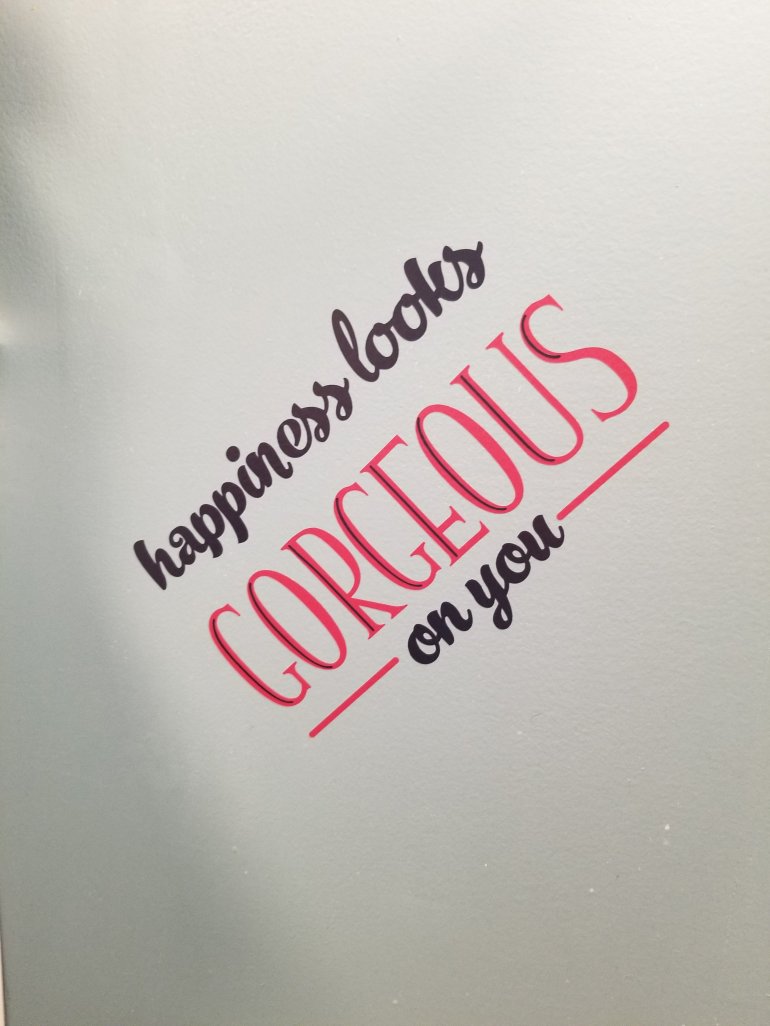 happiness looks
GORGEOUS
on you